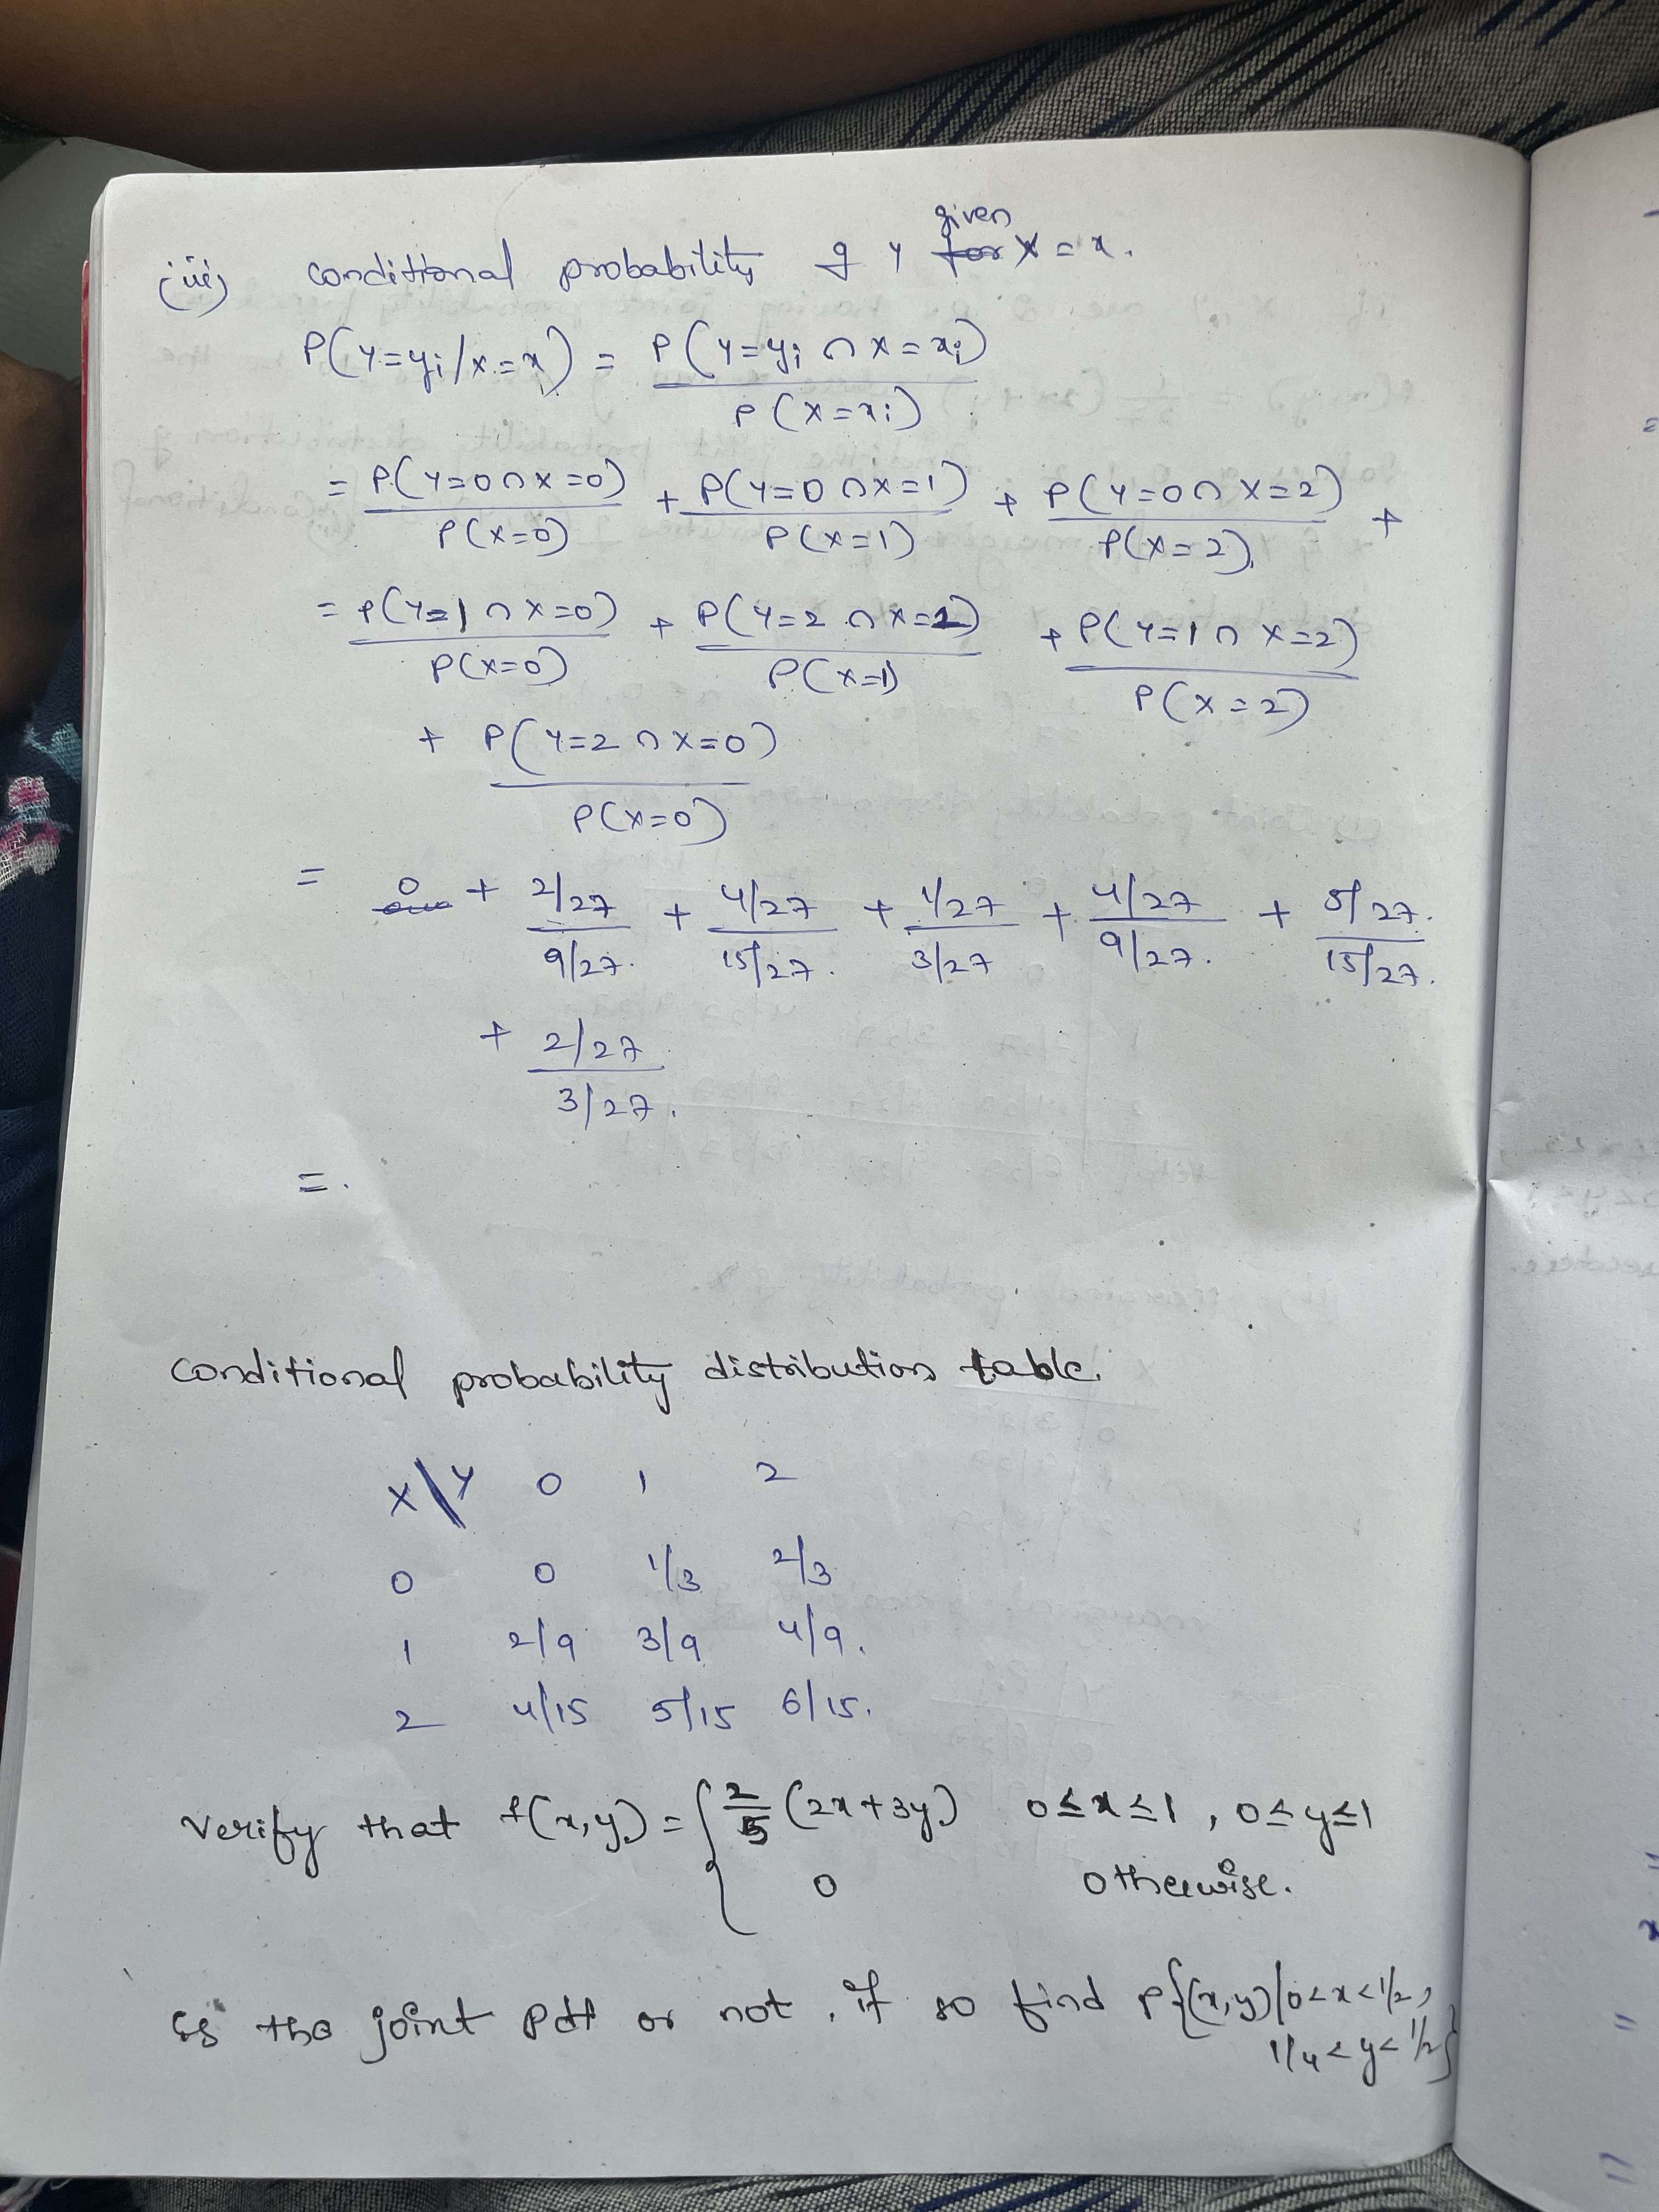 (iii) conditional probability of y given for X = x.
P(y=yi/x=x) = P(y=yi ∩ x=xi) / P(X=xi)
= P(y=0 ∩ x=0) / P(x=0) + P(y=0 ∩ x=1) / P(x=1) + P(y=0 ∩ x=2) / P(x=2) +
= P(y=1 ∩ x=0) / P(x=0) + P(y=2 ∩ x=1) / P(x=1) + P(y=1 ∩ x=2) / P(x=2)
+ P(y=2 ∩ x=0) / P(x=0)
= 0 + 2/27 / 9/27. + 4/27 / 15/27. + 1/27 / 3/27 + 4/27 / 9/27. + 5/27. / 15/27.
+ 2/27 / 3/27.
= .
Conditional probability distribution table.
X\Y 0 1 2
0 0 1/3 2/3
1 2/9 3/9 4/9.
2 4/15 5/15 6/15.
Verify that f(x,y) = { 2/5 (2x+3y) 0≤x≤1, 0≤y≤1
0 otherwise.
is the joint pdf or not. if so find P{(x,y)|0<x<1/2,
1/4<y<1/2}